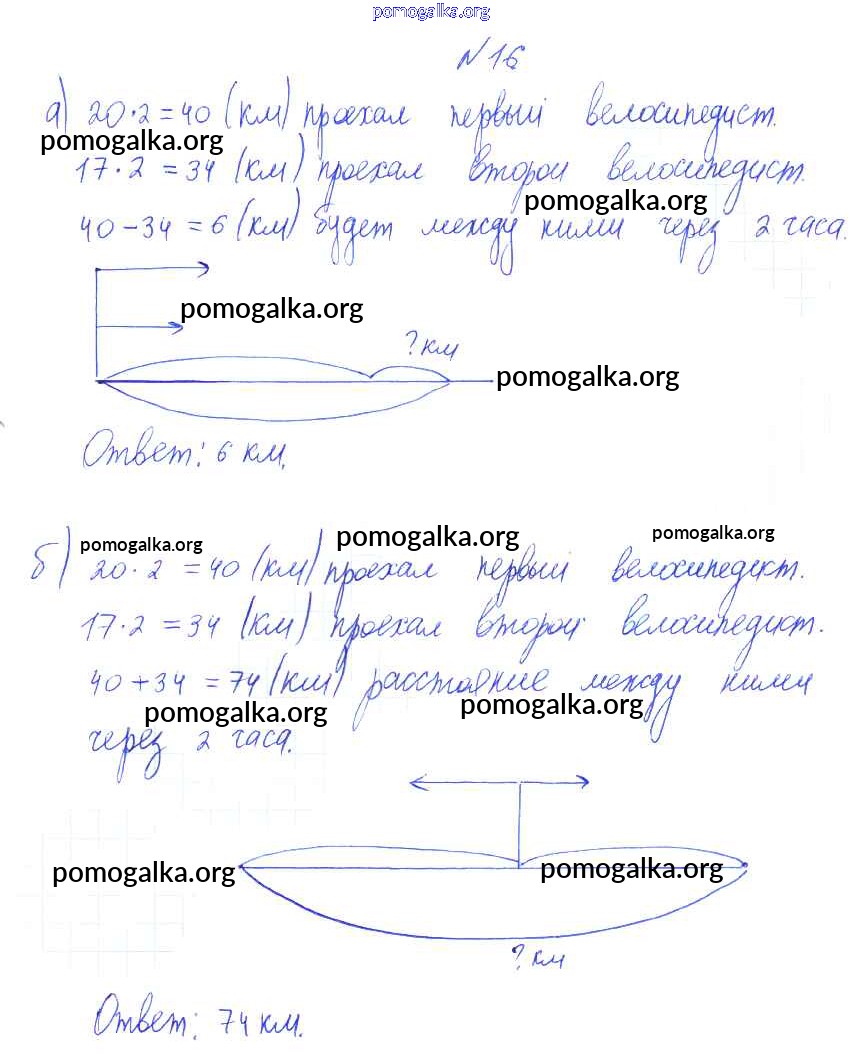 pomogalka.org
№16
а) 20·2=40 (км) проехал первый велосипедист.
pomogalka.org
17·2 = 34 (км) проехал второй велосипедист.
pomogalka.org
40-34 = 6 (км) будет между ними через 2 часа.
pomogalka.org
? км
pomogalka.org
Ответ: 6 км.
pomogalka.org pomogalka.org pomogalka.org
б) 20·2 =40 (км) проехал первый велосипедист.
17·2 = 34 (км) проехал второй велосипедист.
40+34 = 74 (км) расстояние между ними
pomogalka.org pomogalka.org
через 2 часа.
pomogalka.org pomogalka.org
? км
Ответ: 74 км.